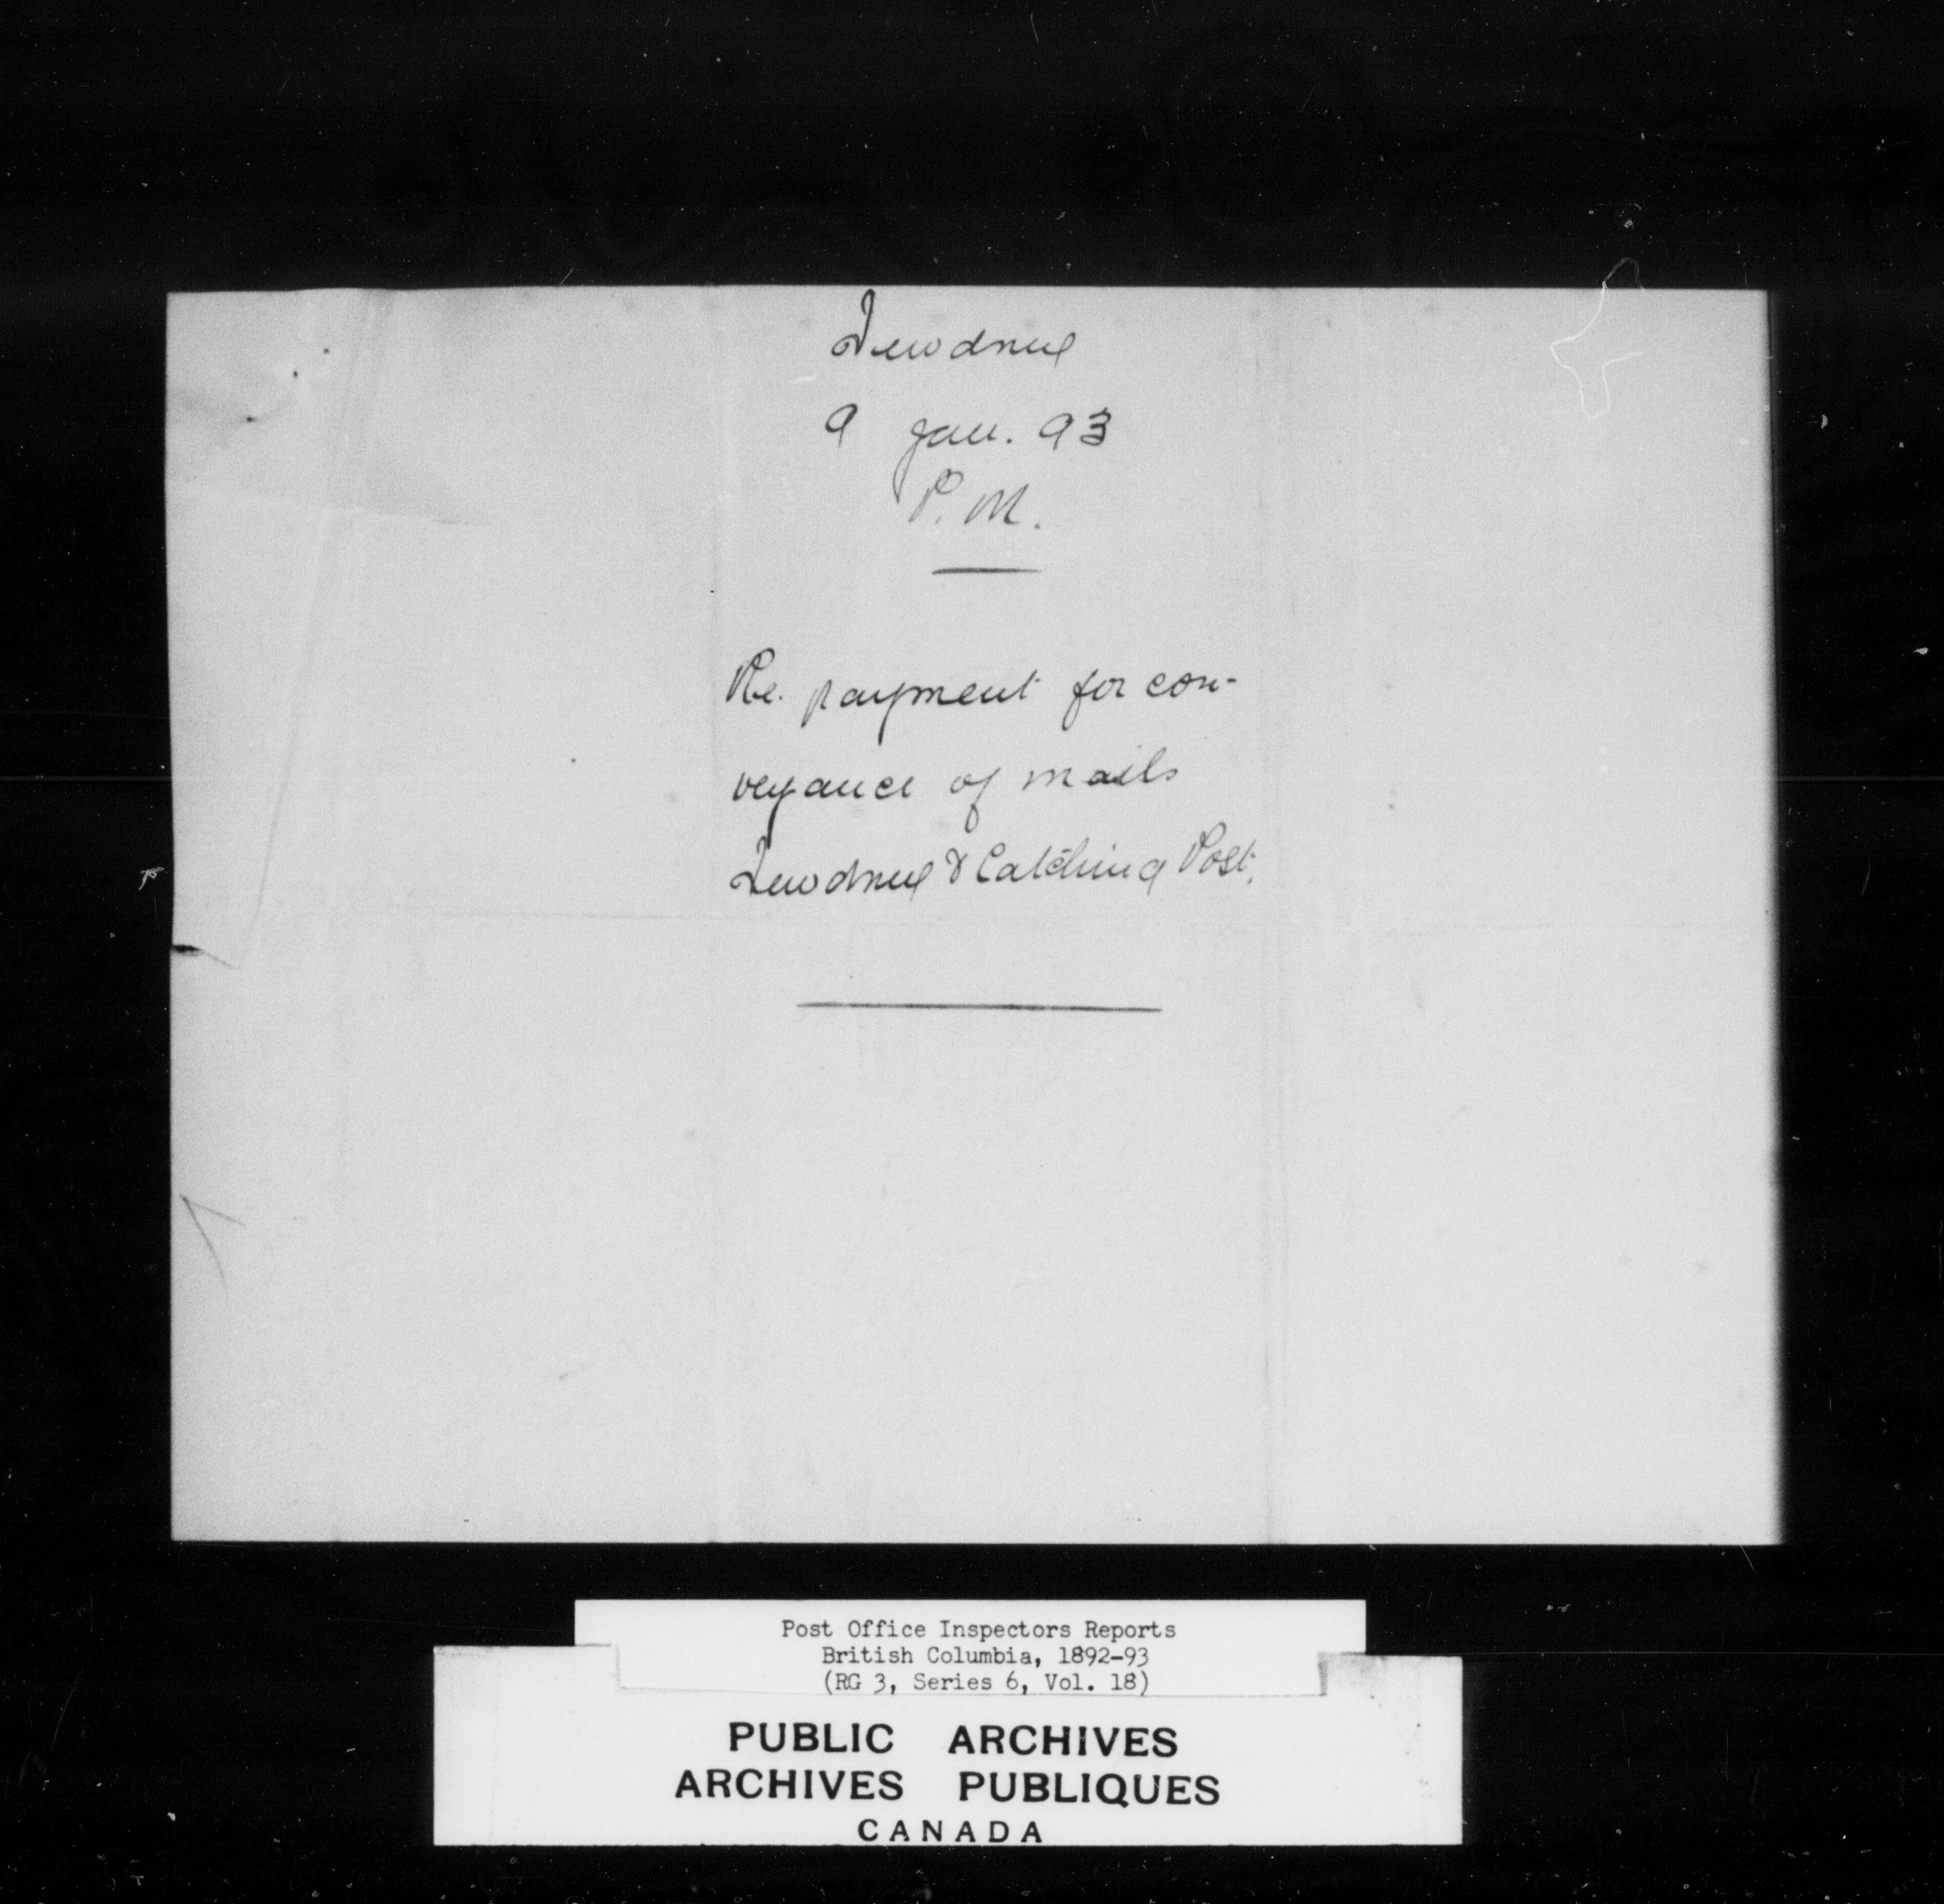 Dewdney
9 Jan. 93
P. M.
Re. payment for con-
veyance of mails
Dewdney & Catching Post.
Post Office Inspectors Reports
British Columbia, 1892-93
(RG 3, Series 6, Vol. 18)
PUBLIC ARCHIVES
ARCHIVES PUBLIQUES
CANADA